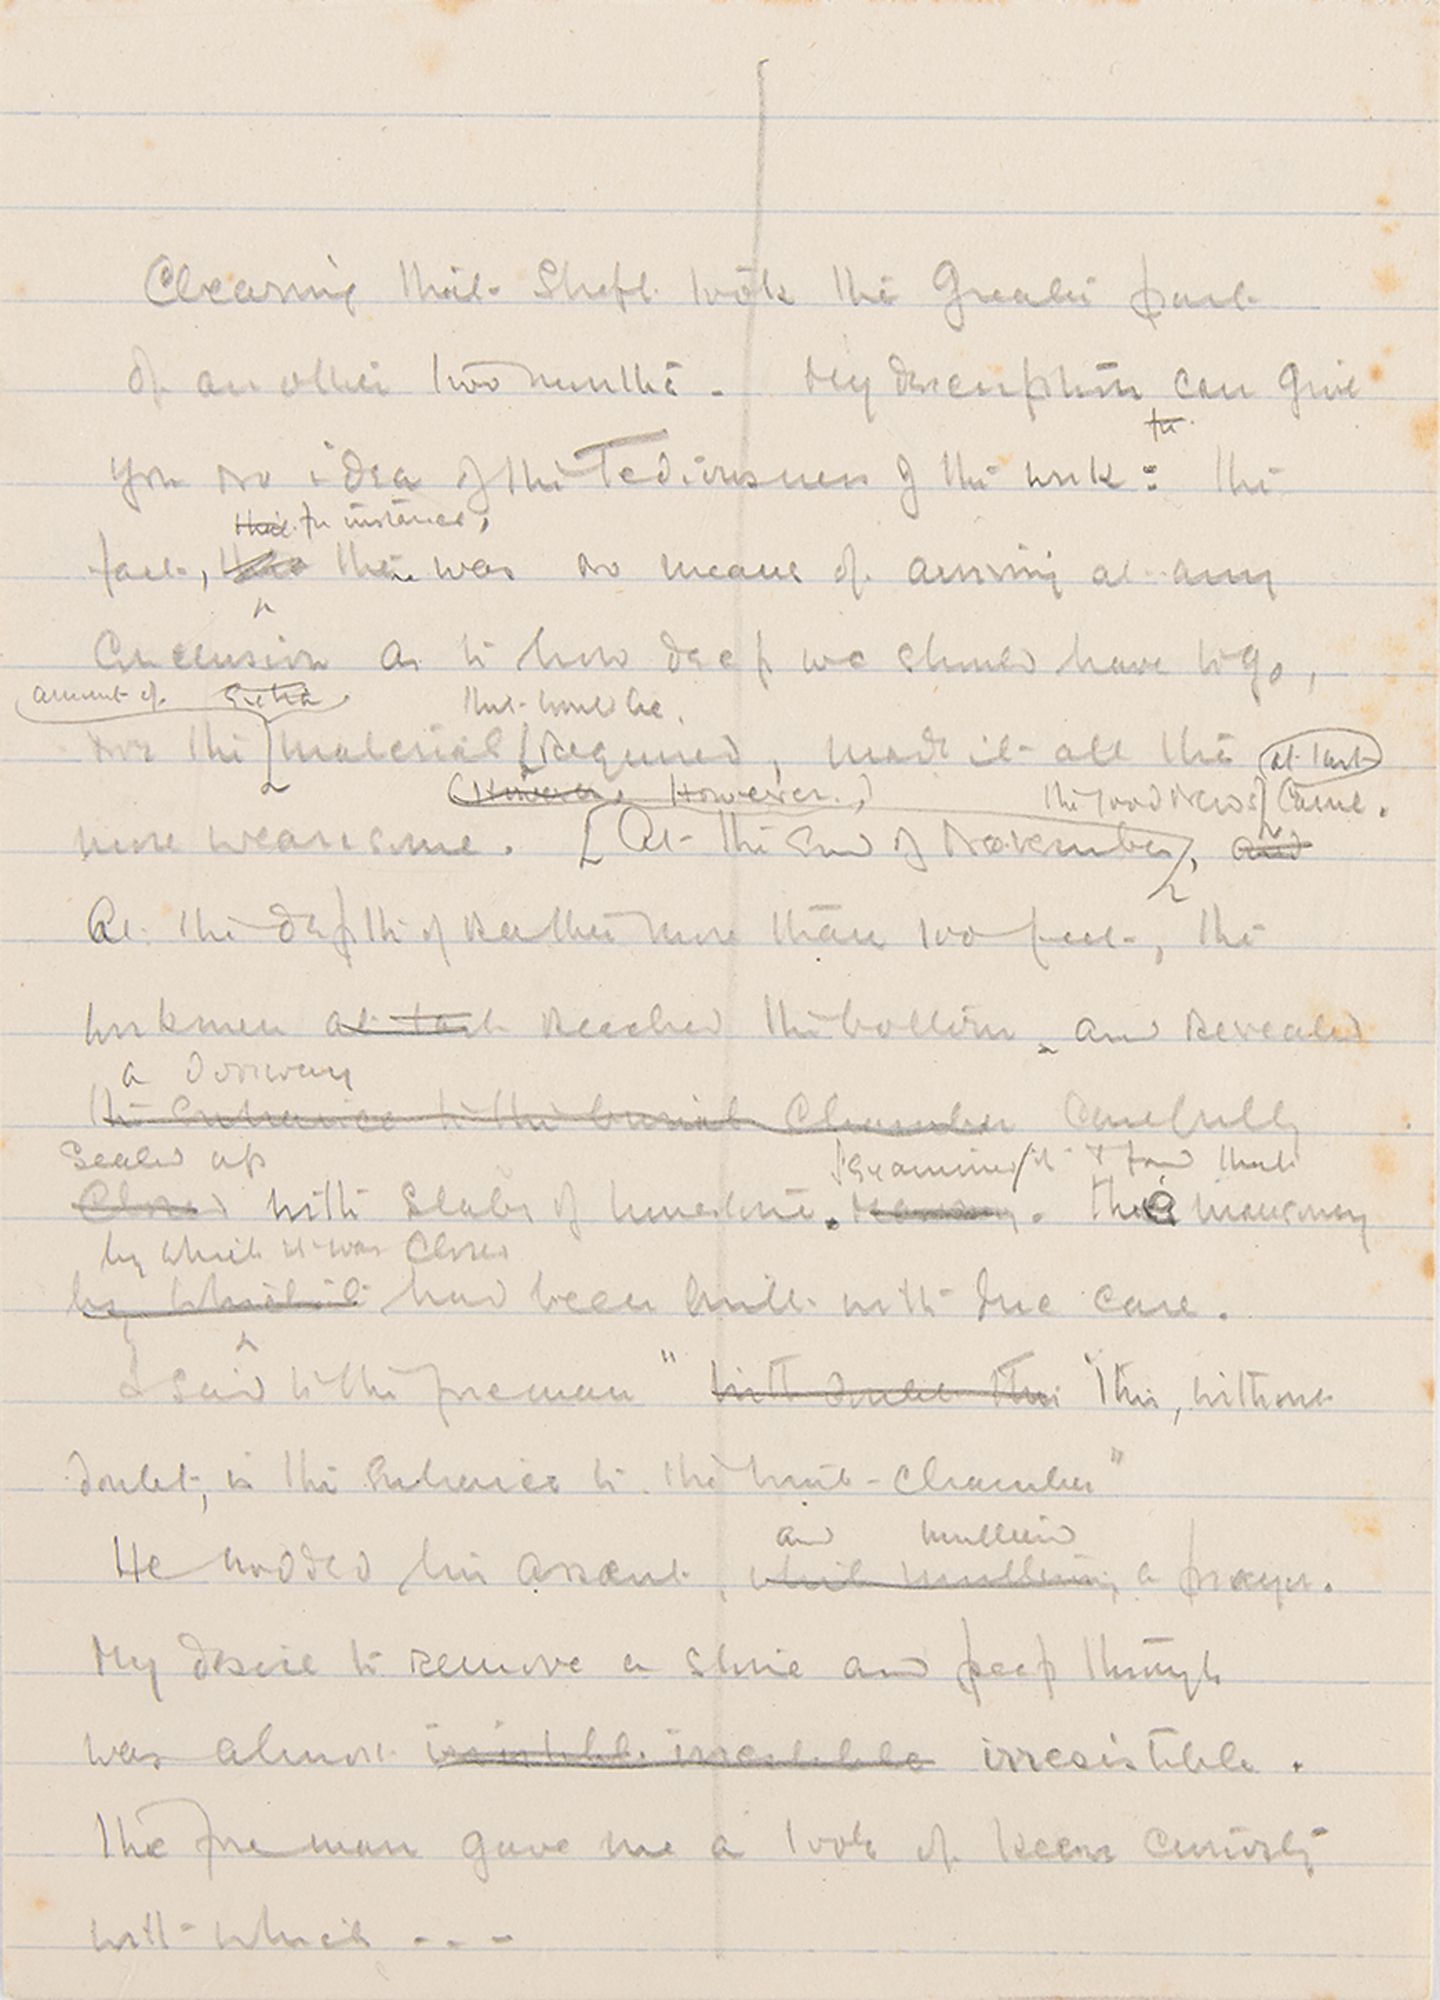 Clearing that Shaft took the Greater part
of another two months. My description can give
for
you no idea of the Tediousness of the work: the
that for instance,
fact, that there was no means of arriving at any
Conclusion as to how deep we should have to go,
amount of extra that would be
nor the material Required, made it all the at last
However. However, the good News Came.
more wearisome. [At the End of November, and
At the depth of Rather more than 100 feet, the
workmen at last Reached the bottom and Revealed
a doorway
the Entrance to the burial Chamber Carefully
Sealed up examined it & found that
Closed with Slabs of limestone. The masonry
by which it was Closed
by which it had been built with due care.
I said to the foreman " without doubt this This, without
doubt, is the Entrance to the tomb-Chamber"
and muttered
He nodded his assent, while muttering a prayer.
My desire to remove a stone and peep through
was almost irresistible irresistible irresistible.
The foreman gave me a look of keen Curiosity
with which - - -